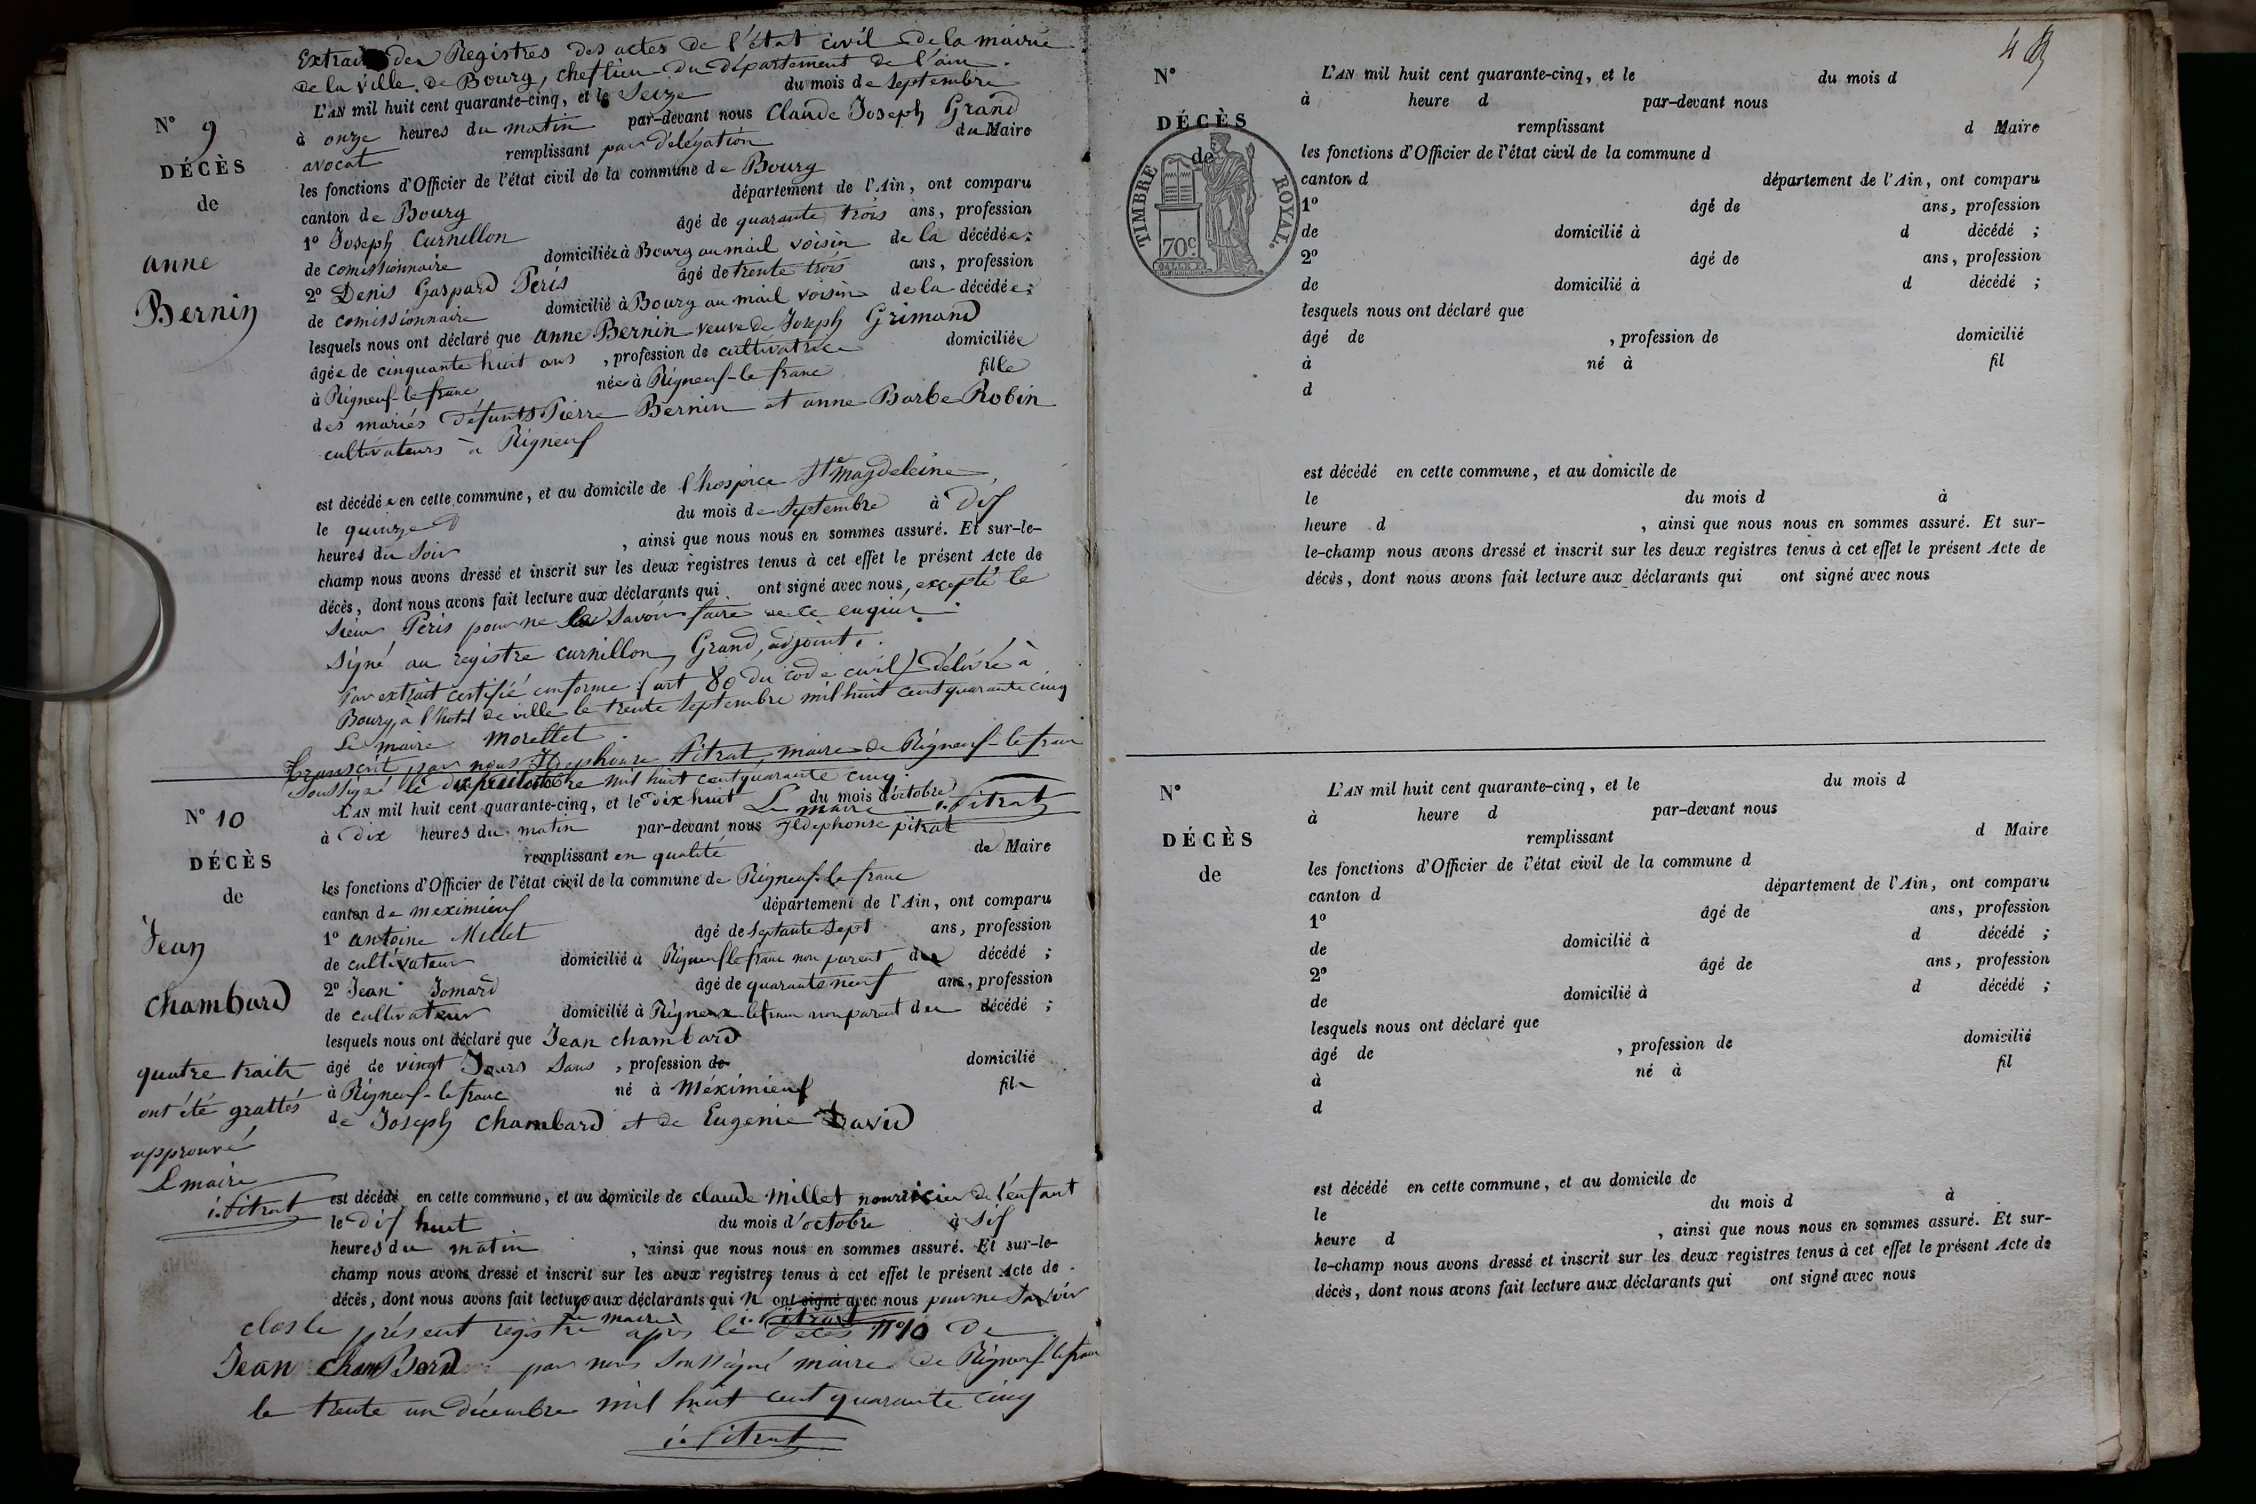 Extrait des Registres des actes de l'état civil de la mairie
de la ville de Bourg, chef lieu du département de l'ain.
N° 9
DÉCÈS
de
anne
Bernin
L'AN mil huit cent quarante-cinq, et le Seize du mois de Septembre
à onze heures du matin par-devant nous Claude Joseph Grand
avocat remplissant par délégation du Maire
les fonctions d'Officier de l'état civil de la commune de Bourg
canton de Bourg département de l'Ain, ont comparu
1° Joseph Curnillon âgé de quarante trois ans, profession
de comissionnaire domicilié à Bourg au mail voisin de la décédée;
2° Denis Gaspard Peris âgé de trente trois ans, profession
de comissionnaire domicilié à Bourg au mail voisin de la décédée;
lesquels nous ont déclaré que anne Bernin veuve de Joseph Grimand
âgée de cinquante huit ans, profession de cultivatrice domiciliée
à Rigneux-le franc née à Rigneux-le franc fille
des mariés défunts Pierre Bernin et anne Barbe Robin
cultivateurs à Rigneux
est décédée en cette commune, et au domicile de l'hospice Ste Magdeleine
le quinze du mois de Septembre à dix
heures du Soir, ainsi que nous nous en sommes assuré. Et sur-le-
champ nous avons dressé et inscrit sur les deux registres tenus à cet effet le présent Acte de
décès, dont nous avons fait lecture aux déclarants qui ont signé avec nous, excepté le
Sieur Peris pour ne le Savoir faire de ce enquis.
Signé au registre curnillon, Grand, adjoint.
Par extrait certifié conforme (art 80 du code civil) délivré à
Bourg, à l'hotel de ville le trente Septembre mil huit cent quarante cinq
Le maire Morellet.
Transcrit par nous Ildephonse Pitrat, maire de Rigneux-le franc
Soussigné le dix huit octobre mil huit cent quarante cinq.
Le maire i. Pitrat
N° 10
DÉCÈS
de
Jean
chambard
quatre traits
ont été grattés
approuvé
Le maire
i. Pitrat
L'AN mil huit cent quarante-cinq, et le dix huit du mois d'octobre
à dix heures du matin par-devant nous Ildephonse pitrat
remplissant en qualité de Maire
les fonctions d'Officier de l'état civil de la commune de Rigneux-le franc
canton de meximieux département de l'Ain, ont comparu
1° antoine Millet âgé de septante sept ans, profession
de cultivateur domicilié à Rigneux le franc non parent du décédé;
2° Jean Jomard âgé de quarante neuf ans, profession
de cultivateur domicilié à Rigneux-le franc non parent du décédé;
lesquels nous ont déclaré que Jean chambard
âgé de vingt Jours Sans, profession de domicilié
à Rigneux-le franc né à Méximieux fils
de Joseph chambard et de Eugenie David
est décédé en cette commune, et au domicile de claude Millet nourricier de l'enfant
le dix huit du mois d'octobre à Six
heures du matin, ainsi que nous nous en sommes assuré. Et sur-le-
champ nous avons dressé et inscrit sur les deux registres tenus à cet effet le présent Acte de
décès, dont nous avons fait lecture aux déclarants qui n'ont signé avec nous pour ne Savoir
Le maire i. Pitrat
clos le présent registre après le décès N° 10 de
Jean chamBard par nous Soussigné maire de Rigneux-le franc
le trente un décembre mil huit cent quarante cinq
i. Pitrat
4
N°
DÉCÈS
de
TIMBRE ROYAL.
70c
L'AN mil huit cent quarante-cinq, et le du mois d
à heure d par-devant nous
remplissant d Maire
les fonctions d'Officier de l'état civil de la commune d
canton d département de l'Ain, ont comparu
1° âgé de ans, profession
de domicilié à d décédé ;
2° âgé de ans, profession
de domicilié à d décédé ;
lesquels nous ont déclaré que
âgé de , profession de domicilié
à né à fil
d
est décédé en cette commune, et au domicile de
le du mois d à
heure d , ainsi que nous nous en sommes assuré. Et sur-
le-champ nous avons dressé et inscrit sur les deux registres tenus à cet effet le présent Acte de
décès, dont nous avons fait lecture aux déclarants qui ont signé avec nous
N°
DÉCÈS
de
L'AN mil huit cent quarante-cinq, et le du mois d
à heure d par-devant nous
remplissant d Maire
les fonctions d'Officier de l'état civil de la commune d
canton d département de l'Ain, ont comparu
1° âgé de ans, profession
de domicilié à d décédé ;
2° âgé de ans, profession
de domicilié à d décédé ;
lesquels nous ont déclaré que
âgé de , profession de domicilié
à né à fil
d
est décédé en cette commune, et au domicile de
le du mois d à
heure d , ainsi que nous nous en sommes assuré. Et sur-
le-champ nous avons dressé et inscrit sur les deux registres tenus à cet effet le présent Acte de
décès, dont nous avons fait lecture aux déclarants qui ont signé avec nous